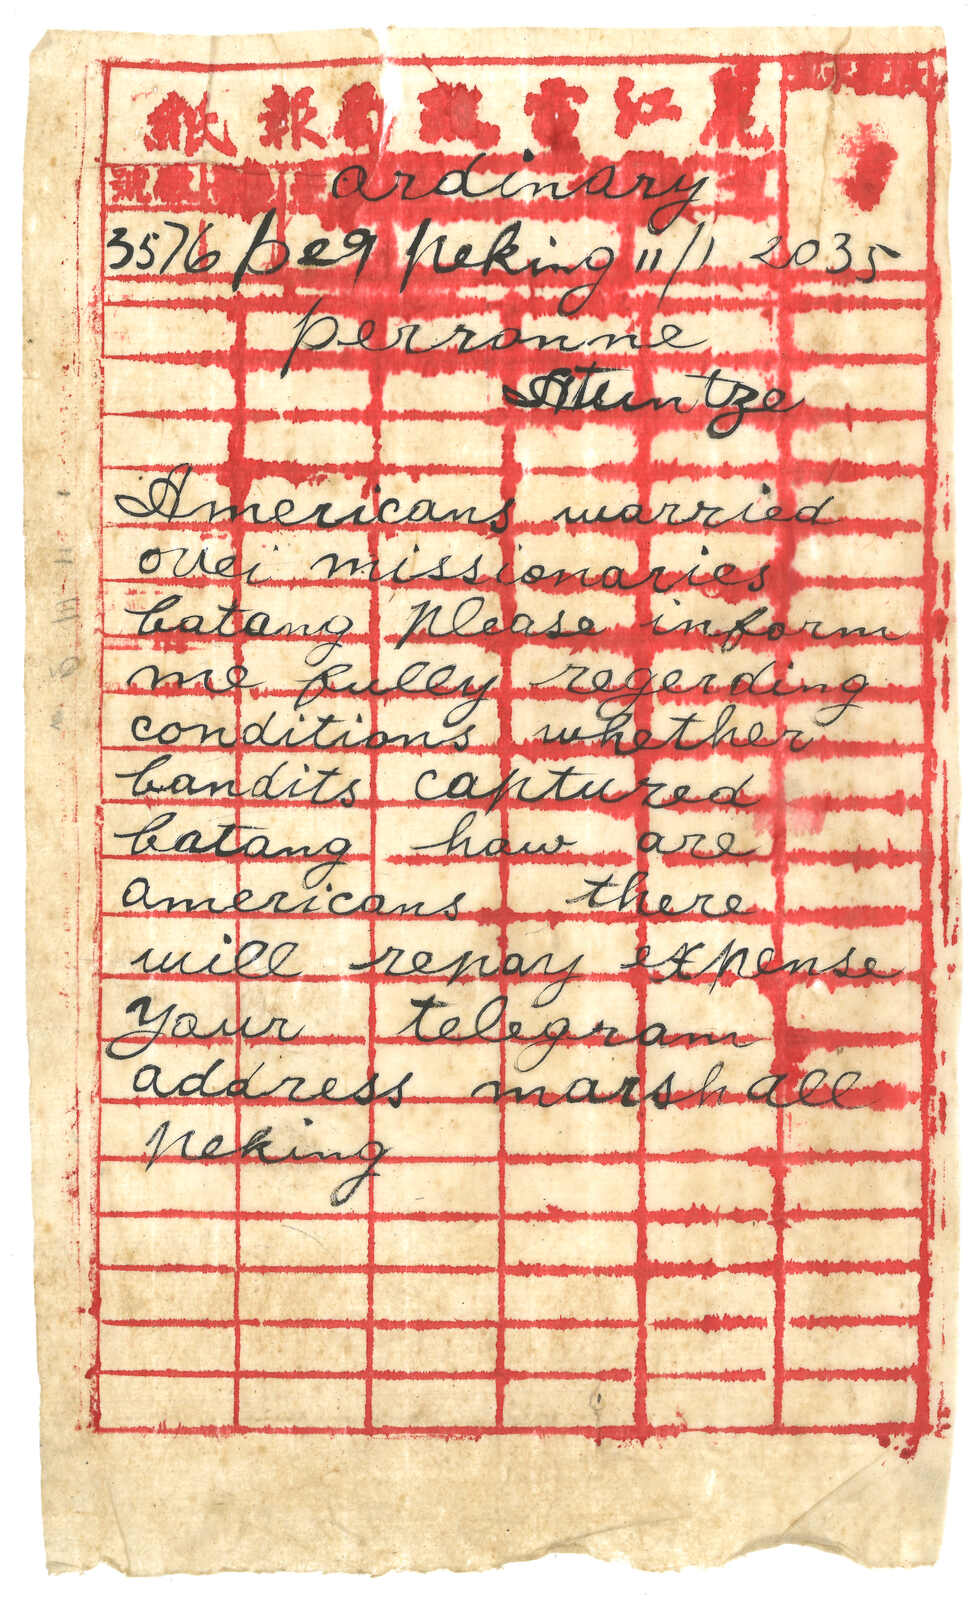 麗江電報局報紙
ordinary
3576 peq peking 11/1 2035
perronne
Atuntze
Americans warried
ovei missionaries
batang please inform
me fully regerding
conditions whether
bandits captured
batang haw are
americans there
will repay expense
your telegram
address marshall
peking